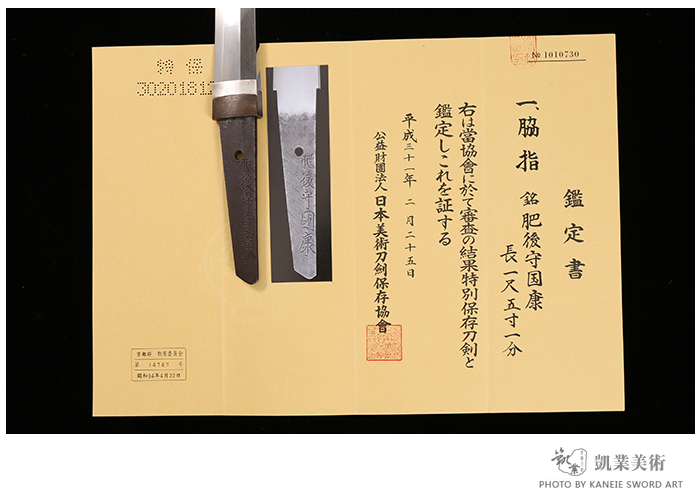 № 1010730
鑑定書
一、脇指
銘 肥後守国康
長一尺五寸一分
右は當協會に於て審査の結果特別保存刀剣と
鑑定しこれを証する
平成三十一年 二月二十五日
公益財團法人 日本美術刀劍保存協會
特保
3020181
肥後守国康
京都府 教育委員会
第 14747 号
昭和34年4月22日
凱業美術
PHOTO BY KANEIE SWORD ART